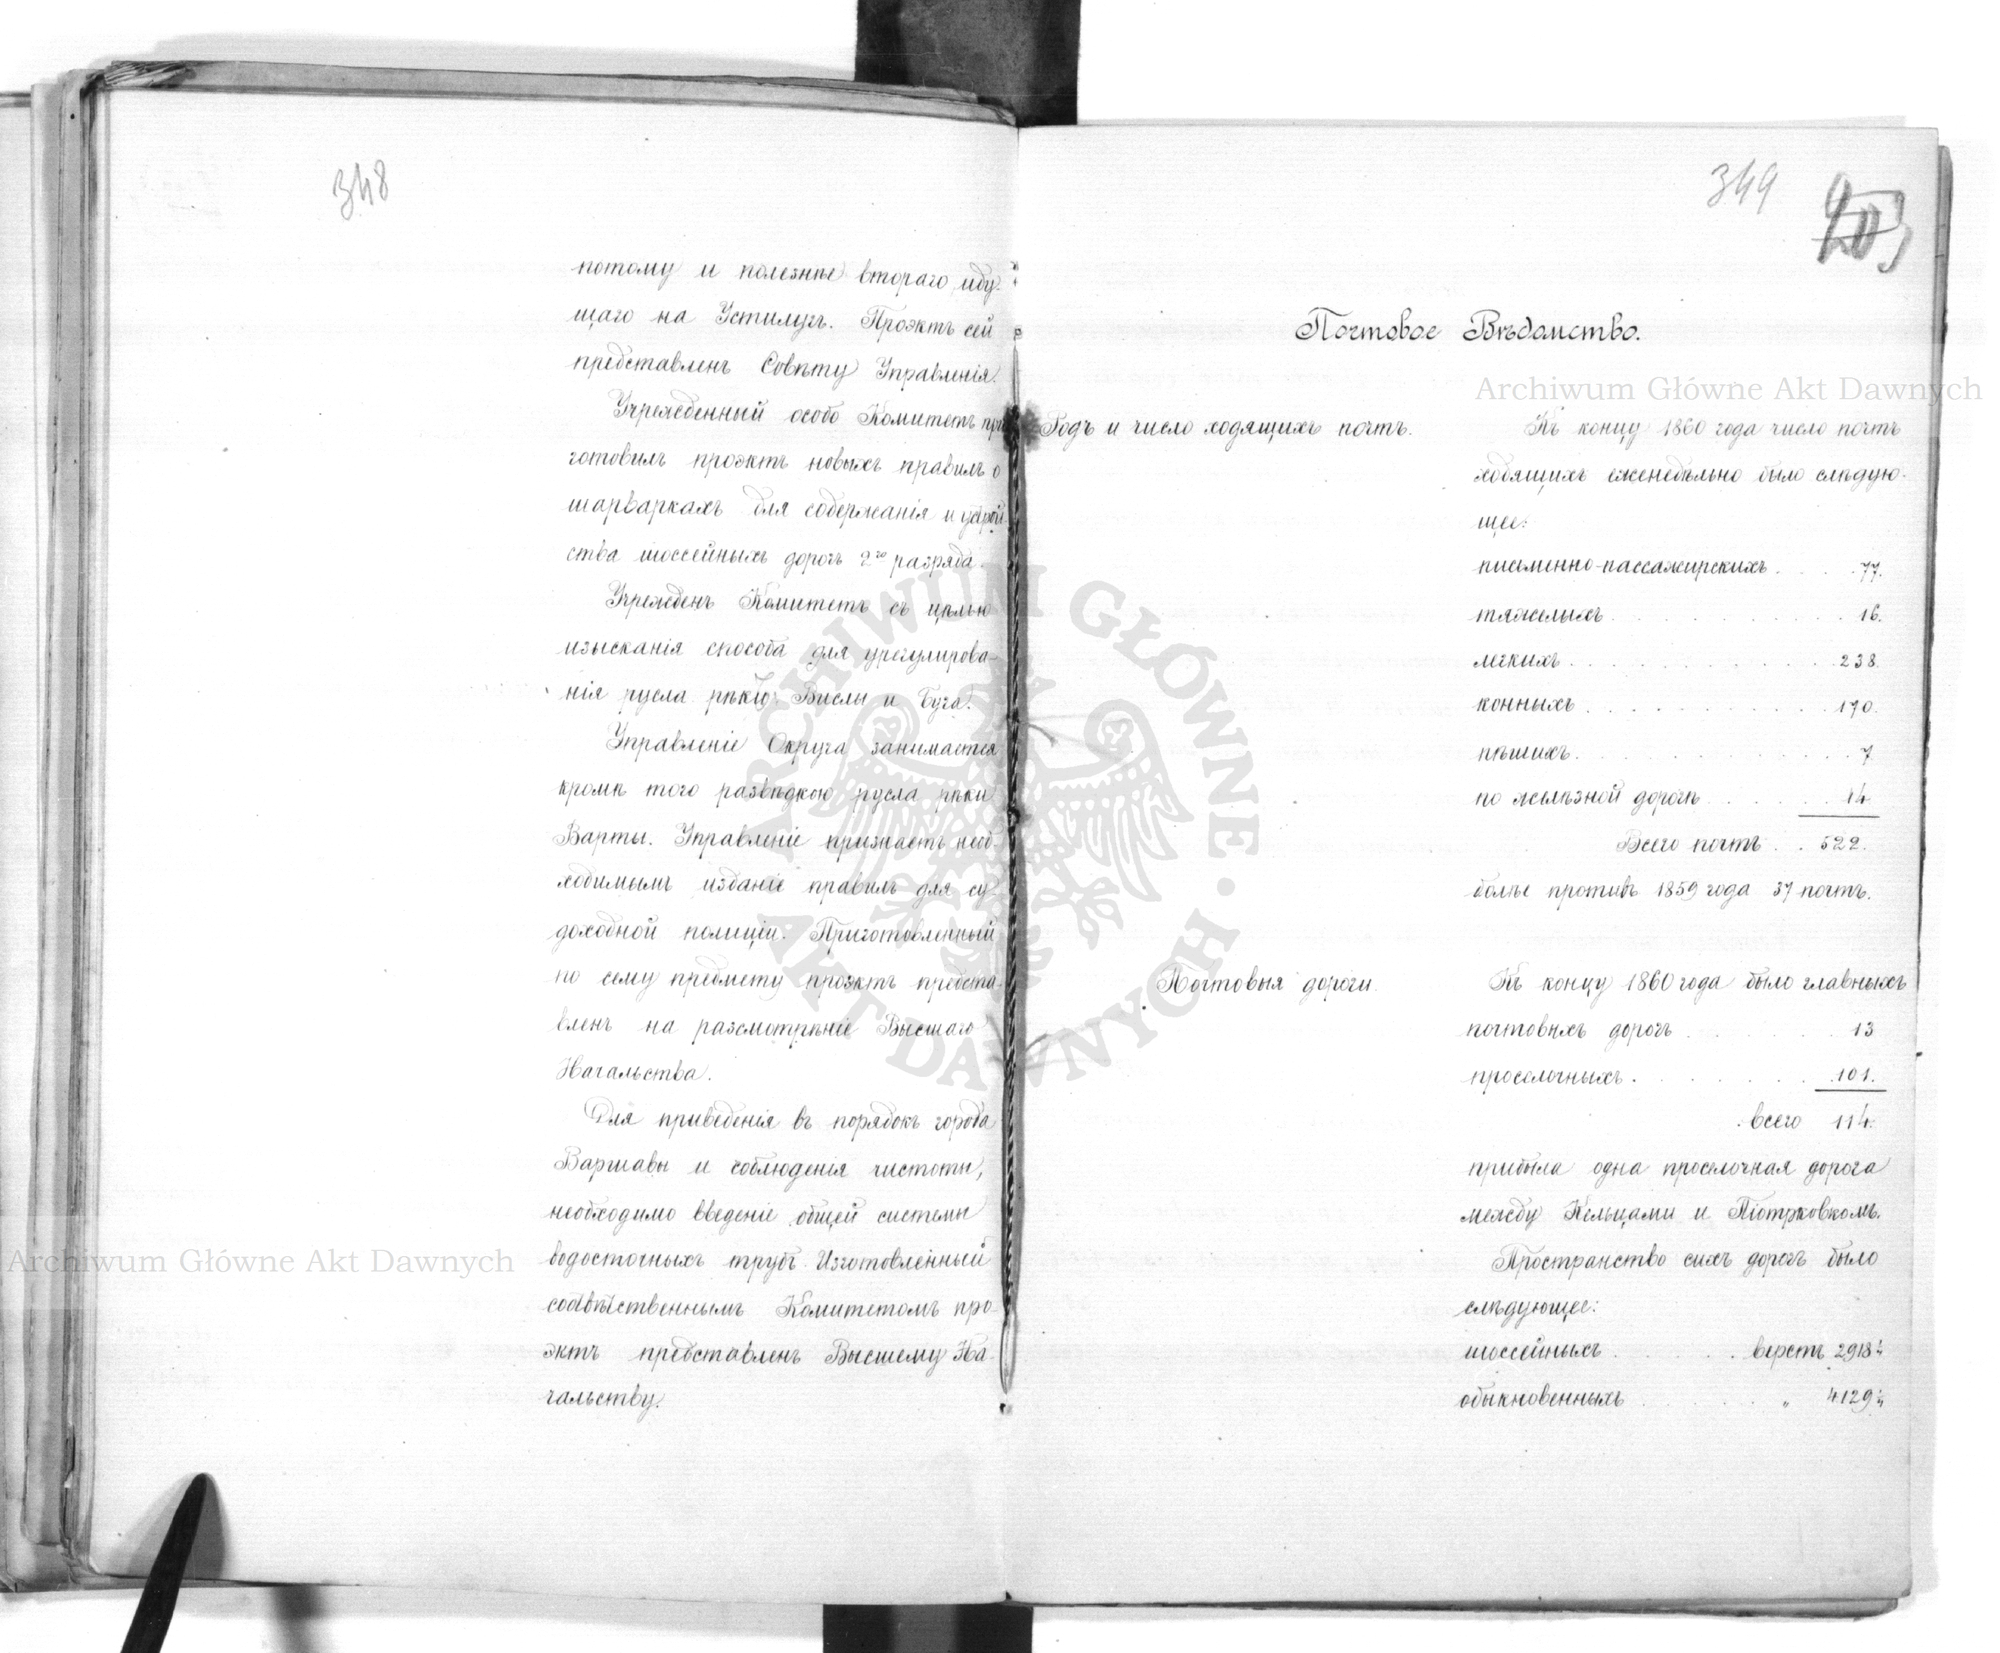 348
потому и полезнѣе втораго иду-
щаго на Устилугъ. Проэктъ сей
представленъ Совѣту Управленія.
Учрежденный особо Комитетъ при
готовилъ проэктъ новыхъ правилъ о
шарваркахъ для содержанія и устрой-
ства шоссейныхъ дорогъ 2го разряда.
Учрежденъ Комитетъ съ цѣлью
изысканія способа для урегулирова-
нія русла рѣкъ: Вислы и Буга.
Управленіе Округа занимается
кромѣ того развѣдкою русла рѣки
Варты. Управленіе признаетъ необ-
ходимымъ изданіе правилъ для су-
доходной полиціи. Приготовленный
по сему предмету проэктъ предста-
вленъ на разсмотрѣніе Высшаго
Начальства.
Для приведенія въ порядокъ города
Варшавы и соблюденія чистоты,
необходимо введеніе общей системы
водосточныхъ трубъ. Изготовленный
собственнымъ Комитетомъ про-
эктъ представленъ Высшему На-
чальству.
349
Почтовое Вѣдомство.
Родъ и число ходящихъ почтъ.
Къ концу 1860 года число почтъ
ходящихъ еженедѣльно было слѣдую-
щее:
письменно-пассажирскихъ . . . . 77.
тяжелыхъ . . . . . . . . . . 16.
легкихъ . . . . . . . . . . . 238.
конныхъ . . . . . . . . . . 170.
пѣшихъ . . . . . . . . . . . 7
по желѣзной дорогѣ . . . . . . 14
Всего почтъ . . 522.
болѣе противъ 1859 года 37 почтъ.
Почтовыя дороги.
Къ концу 1860 года было главныхъ
почтовыхъ дорогъ . . . . . . 13
проселочныхъ . . . . . . . 101.
всего 114.
прибыла одна проселочная дорога
между Кельцами и Піотрковкомъ.
Пространство сихъ дорогъ было
слѣдующее:
шоссейныхъ . . . . . верстъ 2918
обыкновенныхъ . . . . . . „ 4129
Archiwum Główne Akt Dawnych
Archiwum Główne Akt Dawnych
ARCHIWUM GŁÓWNE AKT DAWNYCH